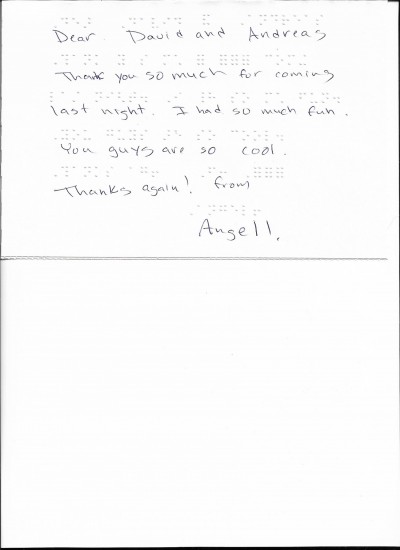 Dear David and Andreas
Thank you so much for coming
last night. I had so much fun.
You guys are so cool.
Thanks again! from
Angell.